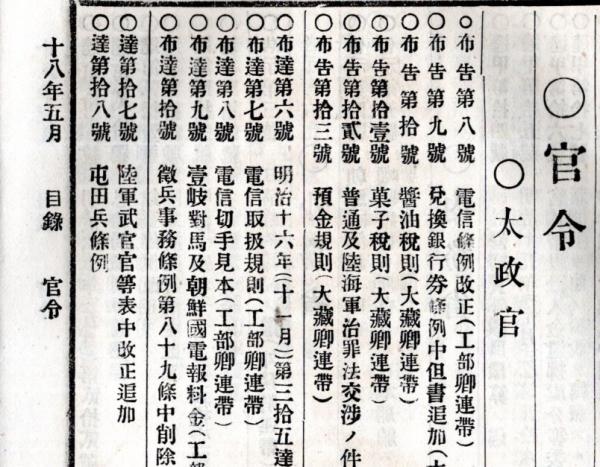 ○官令
○太政官
○布告第八號 電信條例改正(工部卿連帶)
○布告第九號 兌換銀行券條例中但書追加(大
○布告第拾號 醬油稅則(大藏卿連帶)
○布告第拾壹號 菓子稅則(大藏卿連帶)
○布告第拾貳號 普通及陸海軍治罪法交涉ノ件
○布告第拾三號 預金規則(大藏卿連帶)
○布達第六號 明治十六年(十一月)第三拾五達
○布達第七號 電信取扱規則(工部卿連帶)
○布達第八號 電信切手見本(工部卿連帶)
○布達第九號 壹岐對馬及朝鮮國電報料金(工部
○布達第拾號 徵兵事務條例第八十九條中削除
○達第拾七號 陸軍武官官等表中改正追加
○達第拾八號 屯田兵條例
十八年五月 目錄 官令